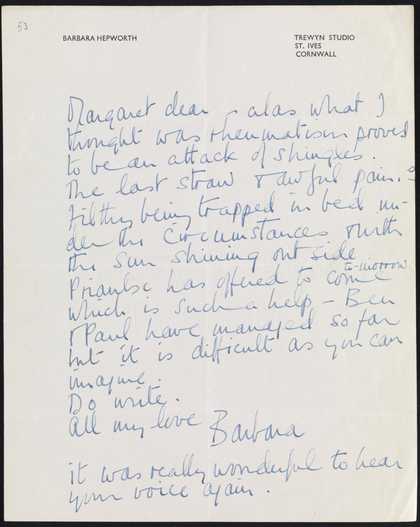 53
BARBARA HEPWORTH
TREWYN STUDIO
ST. IVES
CORNWALL
Margaret dear – alas what I
thought was rheumatism proved
to be an attack of shingles.
The last straw & awful pain.
Filthy being trapped in bed un-
der the circumstances & with
the sun shining outside
Priaulx has offered to come to-morrow
which is such a help – Ben
& Paul have managed so far
but it is difficult as you can
imagine.
Do write.
All my love Barbara
it was really wonderful to hear
your voice again.